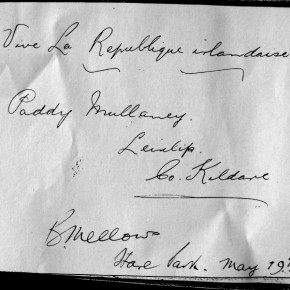 Vive La Republique irlandaise
Paddy Mullaney.
Leixlip.
Co. Kildare
B. Mellows
Hare Park. May 19